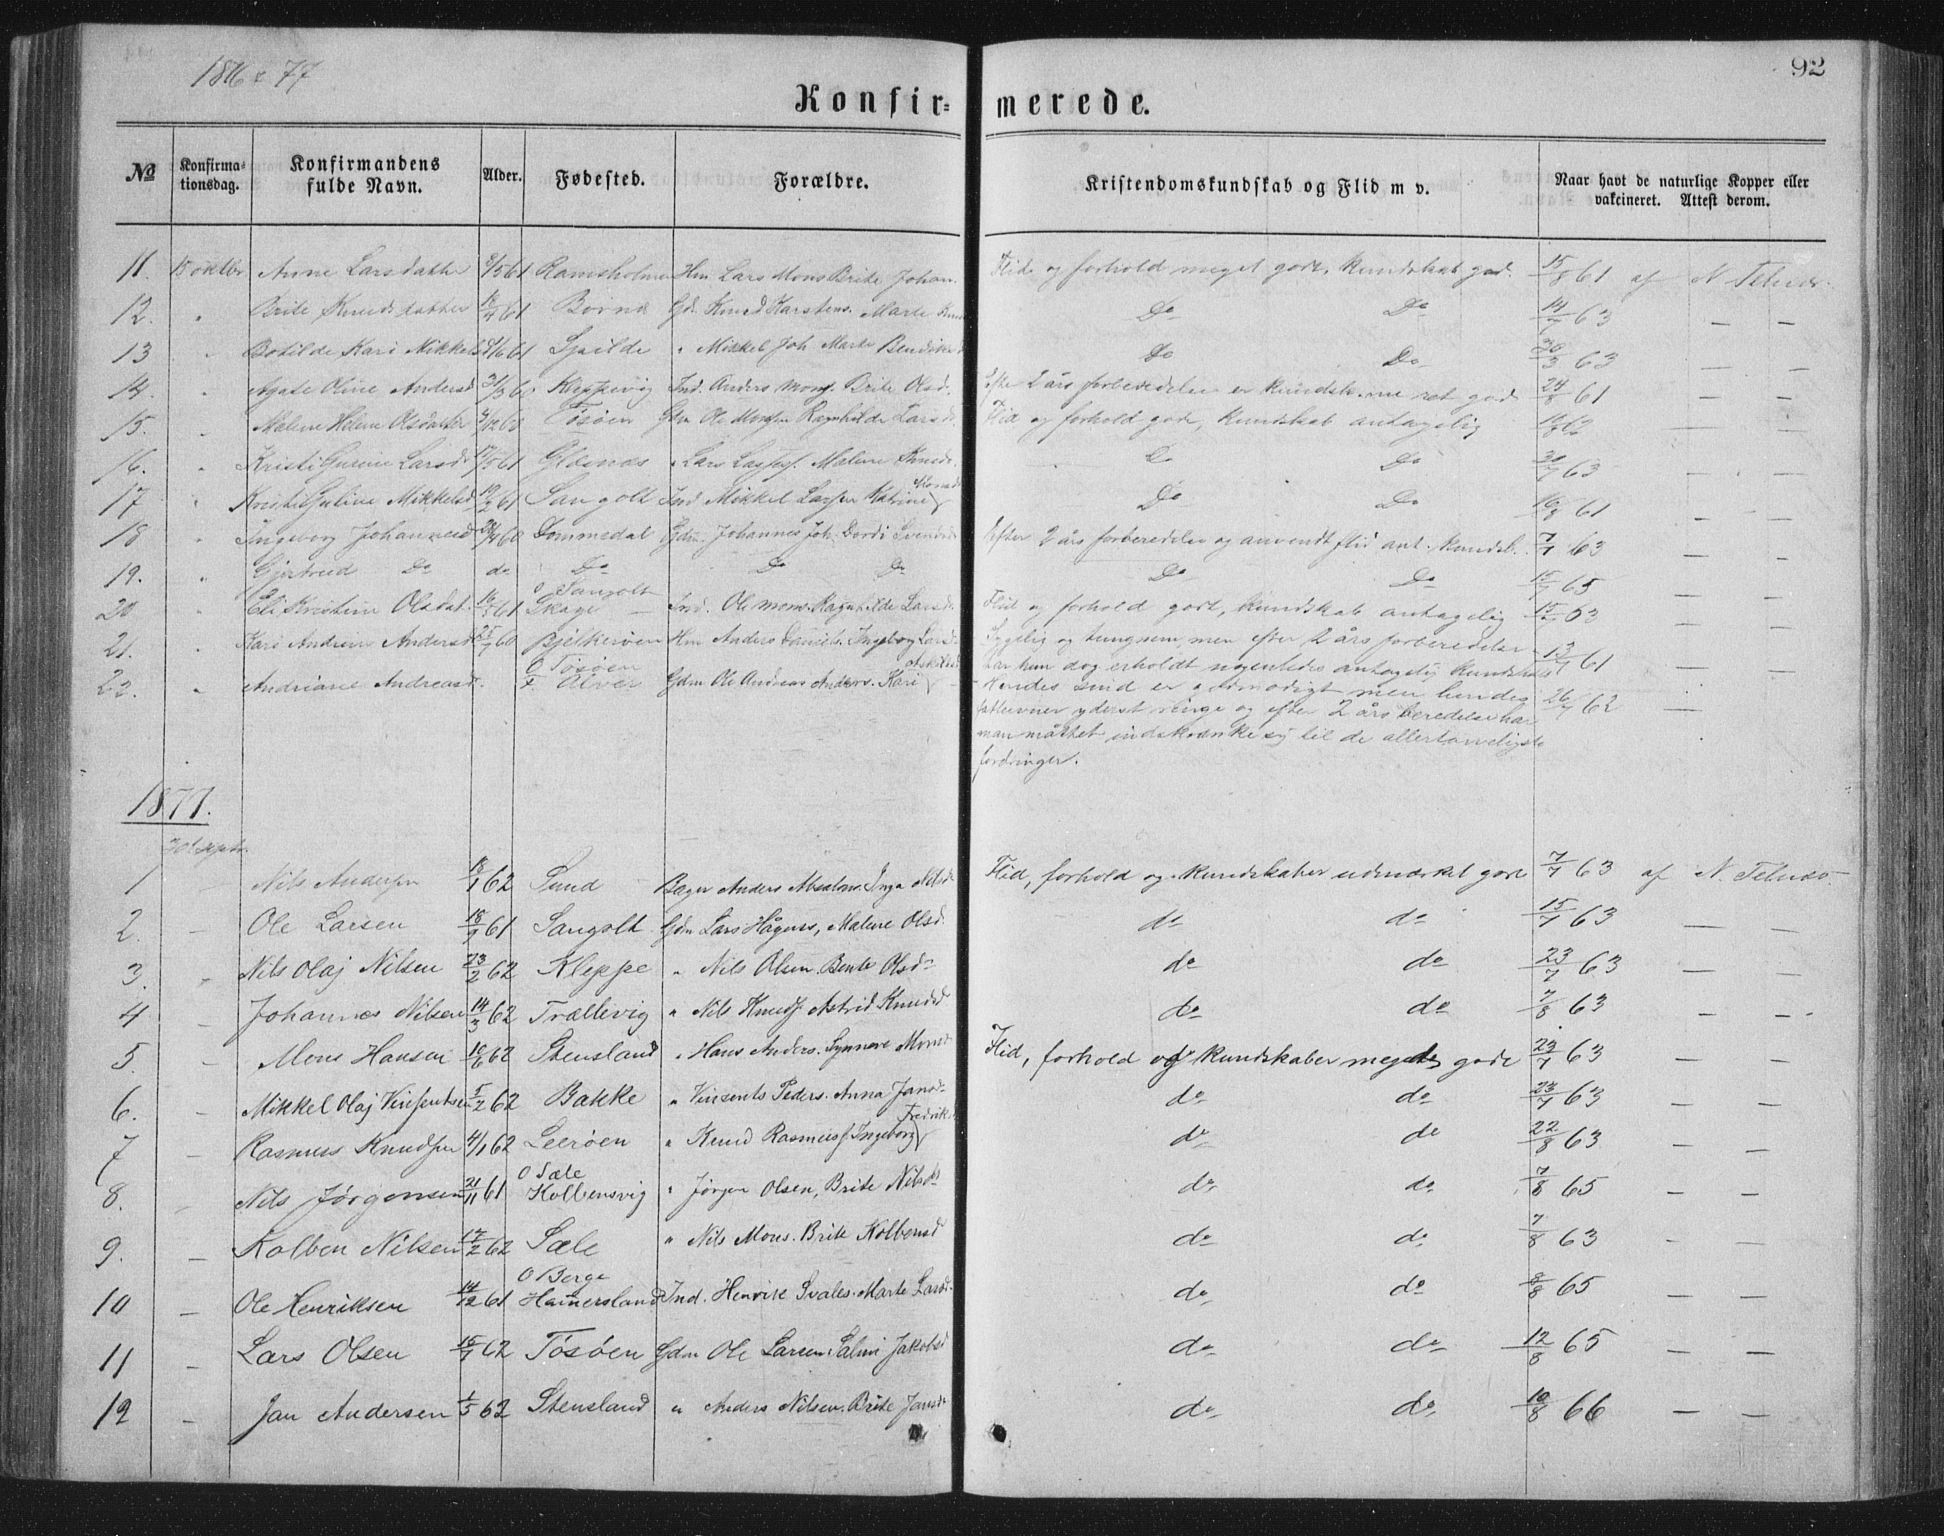 1876 & 77
92
Konfirmerede.
№ Konfirmationsdag. Konfirmandens fulde Navn. Alder. Fødested. Forældre. Kristendomskundskab og Flid m v. Naar havt de naturlige Kopper eller vakcineret. Attest derom.
11. 15 oktbr Anne Larsdatter 61 Ramsholmen Hm Lars Mons Brite Johan. Flid og forhold meget godt, kundskab god. 15/8 61 af N. Telnæs
12. " Brite Knudsdatter 61 Børnæ Gdm. Knud Karstens. Marte Do Do 14/7 63 — —
13 " Botilde Kari Mikkels 61 Spilde " Mikkel Joh Marte Bendiks Do Do 63 — —
14. " Agate Oline Andersd Kleppevig Ind. Anders Mons. Brite Olsd. Efter 2 års forberedelse er kundsk. ret god 61 — —
15. " Malene Helene Olsdatter Tösöen Gdm Ole Ragnhilde Larsd. Flid og forhold god, kundskab antagelig 62 — —
16. " Kristi Gurine Larsd 61 " Lars Malene Do Do 63 — —
17 " Kristi Guline Mikkelsd 61 Sangolt Ind Mikkel Larsen Katrine Do Do 61 — —
18 " Ingeborg Johannesd 60 Dommedal Gdm. Johannes Joh. Dordi Svends Efter 2 års forberedelse og anvendt flid ant. kundsk. 7/7 63 — —
19. " Gjertrud Do do Do Do Do Do Do 65 — —
O Sangolt
20 " Eli Kristine Olsdat. 61 Skage — Ind. Ole Mons. Ragnhilde Larsd. Flid og forhold godt, kundskab antagelig 63 — —
21. " Kari Andrine Andersd 60 Bjelkerøen Hm Anders Daniels. Ingeborg Larsd. Sygelig og tungnem, men efter 2 års forberedelse
har hun dog erholdt nogenledes antagelig kundskab 13/7 61 — —
O Tösöen
22. " Andriane Andreasd. F. Alver Gdm Ole Andreas Anders. Kari Hendes sind er godmodigt men hendes
fatteevner yderst ringe og efter 2 års beredelse har 26/7 62 —
man måttet indskrænke sig til de allertarveligste
fordringer.
1877.
30 septr.
1 — Nils Andersen 18/1 62 Sund — Bager Anders Absalons. Inga Nilsd Flid, forhold og kundskaber udmærket gode 7/7 63 af N. Telnæs
2. — Ole Larsen 61 Sangolt Gdm Lars Hågens, Malene Olsd. do do 15/7 63 — —
3. — Nils Olaj Nilsen 23/2 62 Kleppe " Nils Olsen. Bente Olsd do do 23/7 63 — —
4 — Johannes Nilsen 14/3 62 Trællevig " Nils Knuds Astrid Knudsd do do 7/8 63 — —
5. — Mons Hansen 10/6 62 Stensland " Hans Anders. Synneve Monsd Flid, forhold og kundskaber meget gode 23/7 63 — —
6. — Mikkel Olaj Vinsentsen 5/2 62 Bakke " Vinsents Peders. Anna Jansd do do 23/7 63 — —
Fredriksd
7 — Rasmus Knudsen 4/1 62 Leeröen " Knud Rasmus Ingeborg do do 22/8 63 — —
O Sæle
8. — Nils Jörgensen 21/11 61 Kolbensvig " Jörgen Olsen, Brite Nilsd do do 7/8 65 — —
9. — Kolben Nilsen 17/2 62 Sæle " Nils Mons. Brite Kolbensd do do 7/8 63 — —
O Berge
10 — Ole Henriksen 14/12 61 Hamersland Ind. Henrik Svales. Marte Larsd. do do 8/8 65 — —
11 — Lars Olsen 62 Tösöen Gdm Ole Larsen. Salmi Jakobsd do do 12/8 65 — —
12 — Jan Andersen 1/5 62 Stensland " Anders Nilsen. Brite Jansd do do 10/8 66 — —